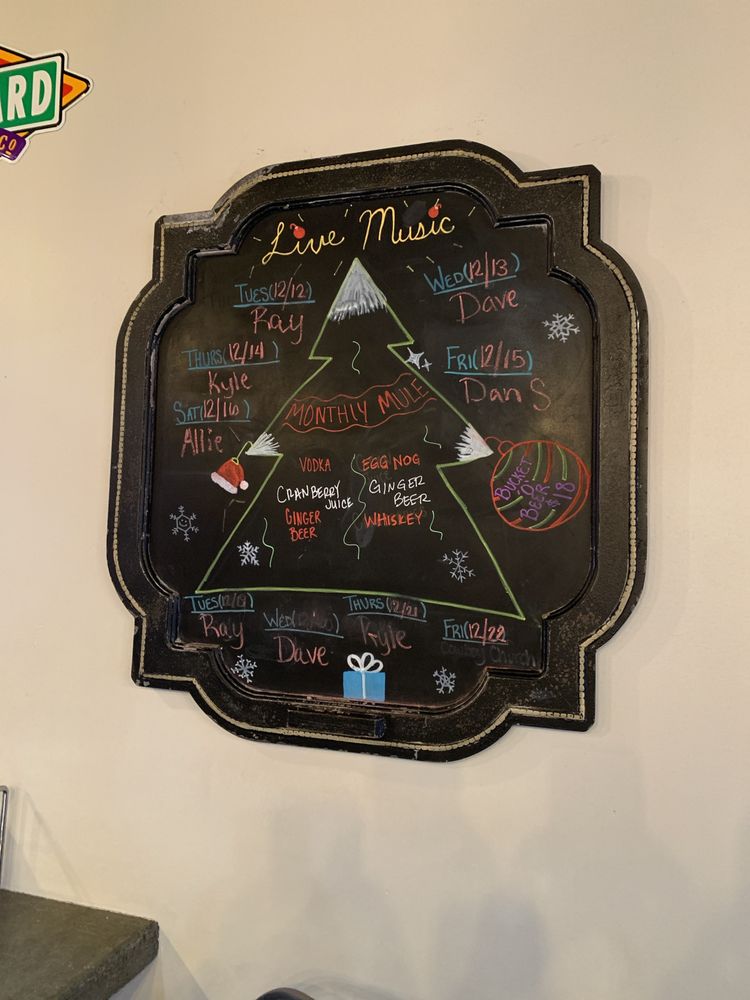 ARD
Co
Live Music
TUES(12/12)
Ray
WED(12/13)
Dave
THURS(12/14)
Kyle
FRI(12/15)
Dan S
SAT(12/16)
Allie
MONTHLY MULE
VODKA
CRANBERRY
JUICE
GINGER
BEER
EGG NOG
GINGER
BEER
WHISKEY
BUCKET
O'
BEER
$18
TUES(12/19)
Ray
WED(12/20)
Dave
THURS(12/21)
Kyle
FRI(12/22
Cowboy Church